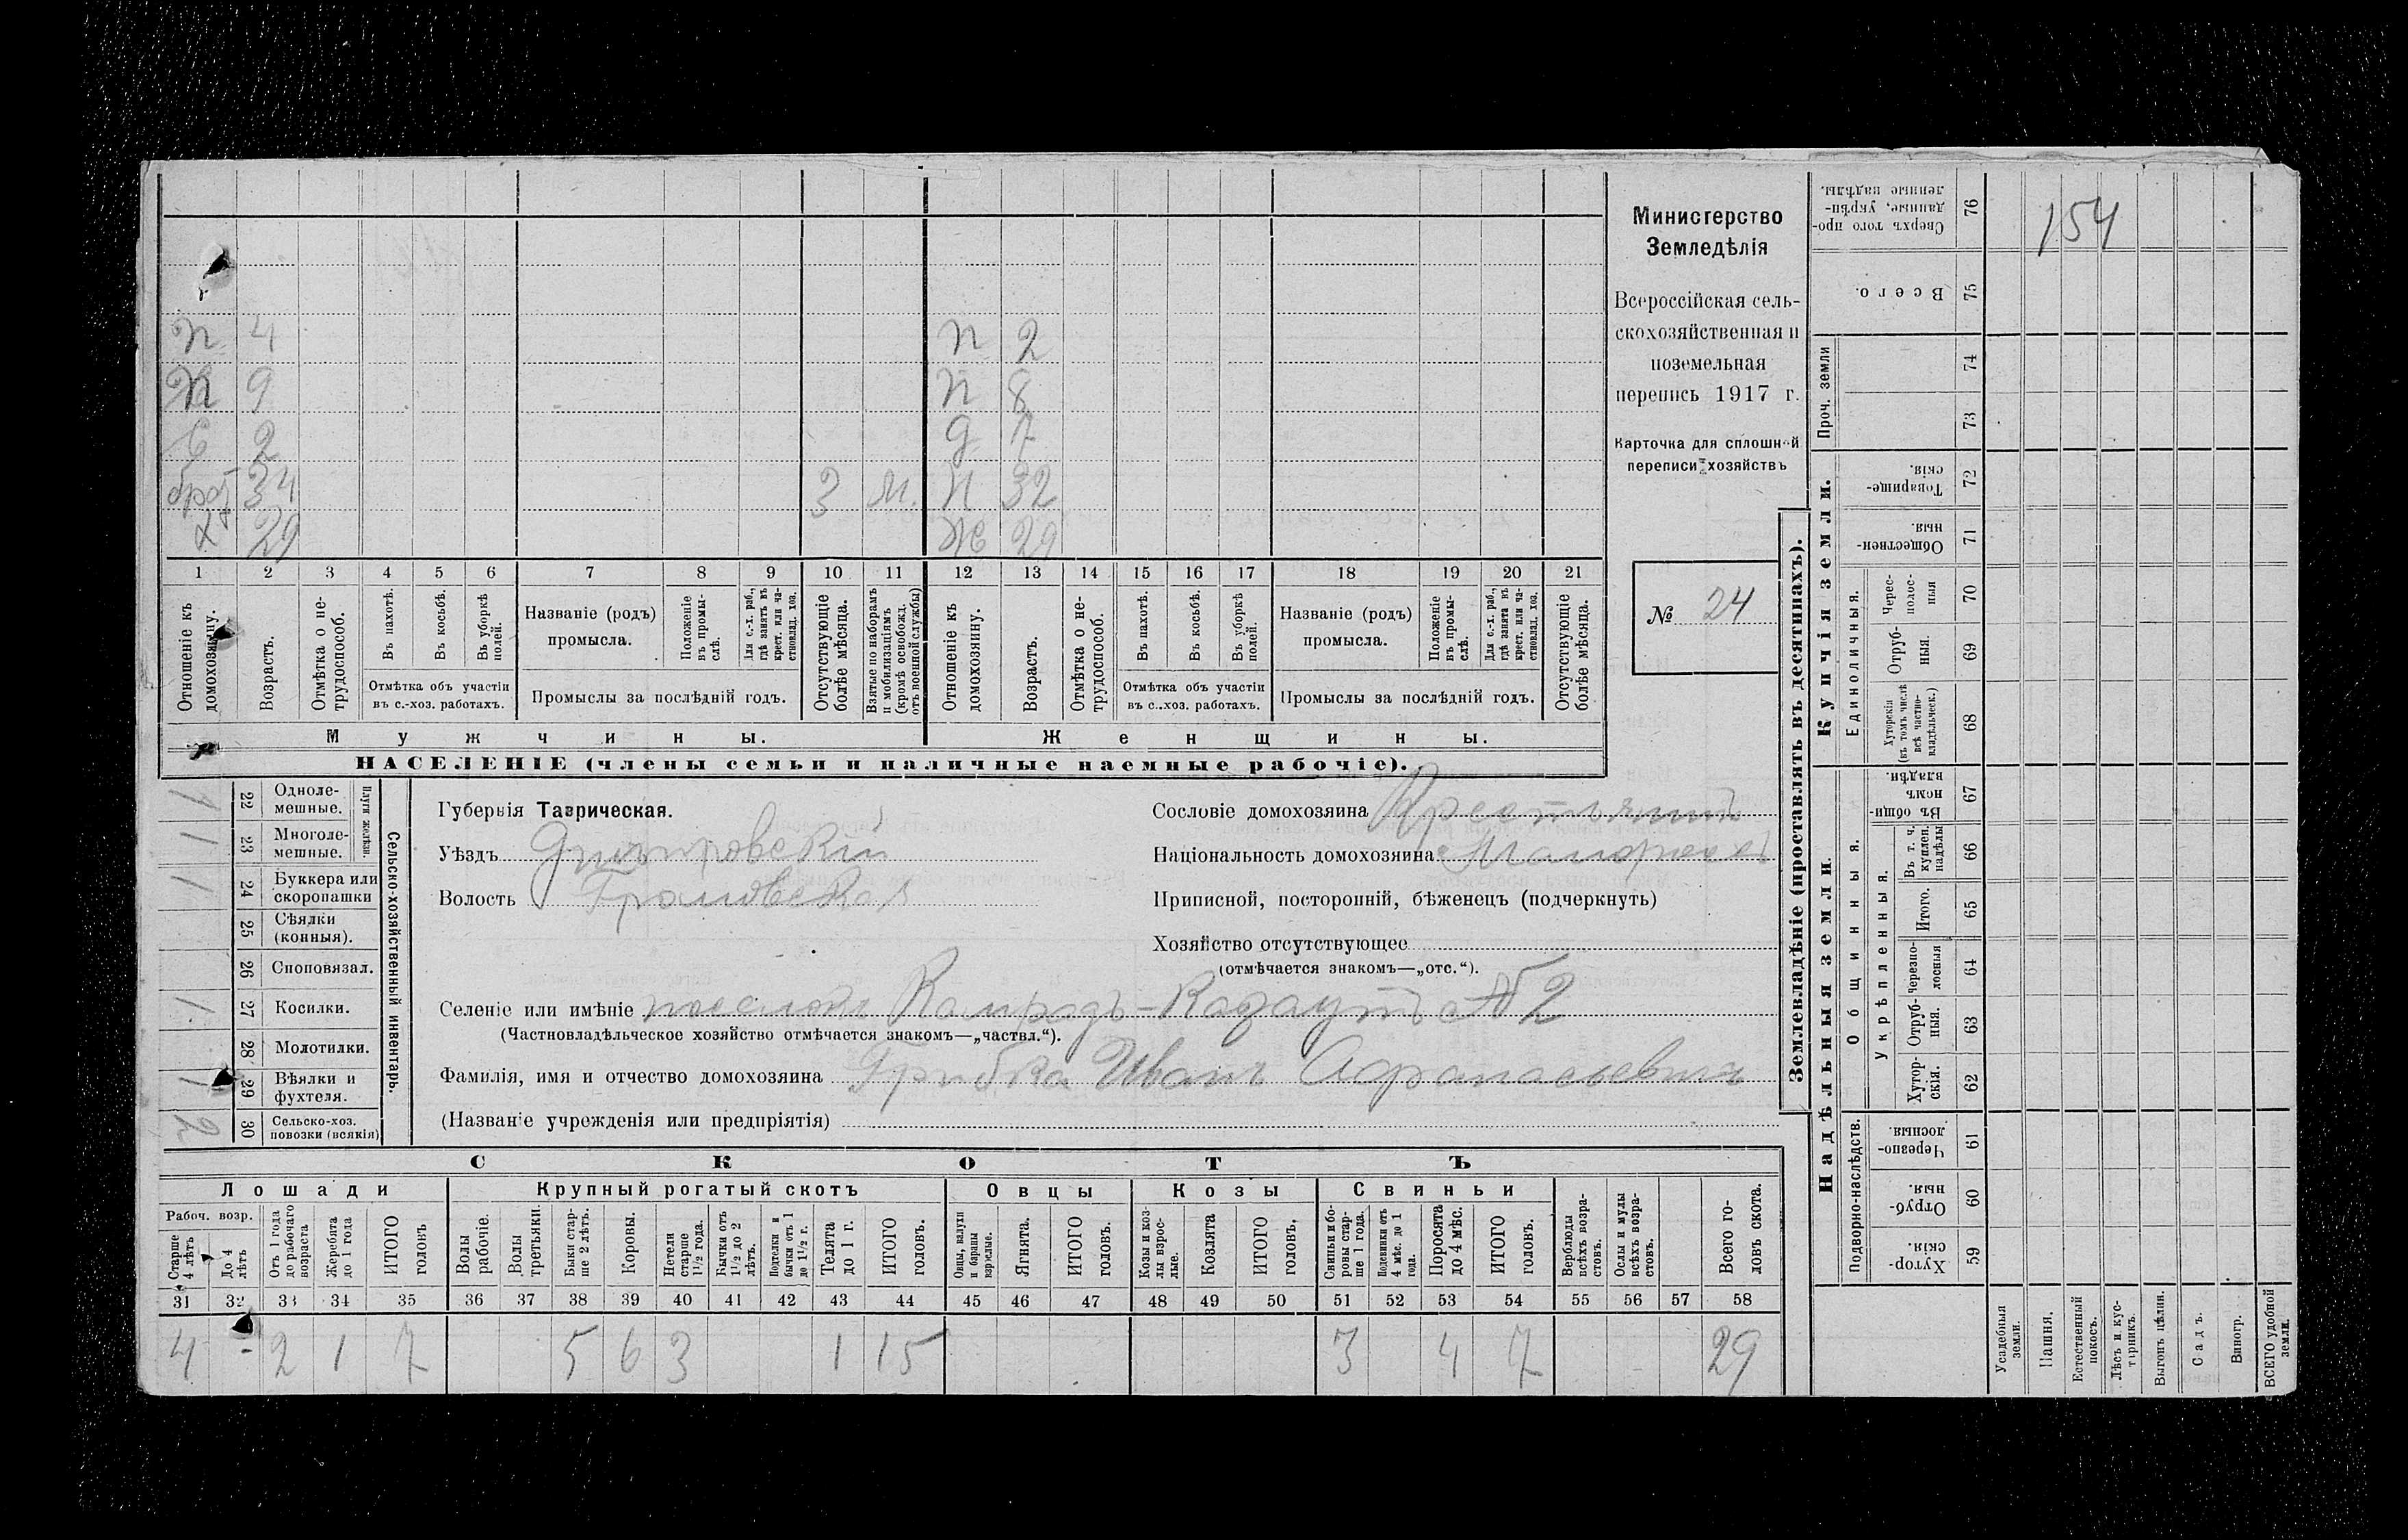 п 4 п 2
п 9 п 8
с 2 д 7
брат 34 3 м. п 32
х 29 ж 29
1 2 3 4 5 6 7 8 9 10 11 12 13 14 15 16 17 18 19 20 21
Отношеніе къ домохозяину.
Возрастъ.
Отмѣтка о не-
трудоспособ.
Въ пахотѣ.
Въ косьбѣ.
Въ уборкѣ
полей.
Отмѣтка объ участіи
въ с.-хоз. работахъ.
Названіе (родъ)
промысла.
Положеніе
въ промы-
слѣ.
Для с.-х. раб.,
гдѣ занятъ въ
крест. или ча-
стновлад. хоз.
Промыслы за послѣдній годъ.
Отсутствующіе
болѣе мѣсяца.
Взятые по наборамъ
и мобилизаціямъ
(кромѣ освобожд.
отъ военной службы)
Отношеніе къ
домохозяину.
Возрастъ.
Отмѣтка о не-
трудоспособ.
Въ пахотѣ.
Въ косьбѣ.
Въ уборкѣ
полей.
Отмѣтка объ участіи
въ с..хоз. работахъ.
Названіе (родъ)
промысла.
Положеніе
въ промы-
слѣ.
Для с.-х. раб.,
гдѣ занята въ
крест. или ча-
стновлад. хоз.
Промыслы за послѣдній годъ.
Отсутствующіе
болѣе мѣсяца.
Мужчины. Женщины.
НАСЕЛЕНІЕ (члены семьи и наличные наемные рабочіе).
Министерство
Земледѣлія
Всероссійская сель-
скохозяйственная и
поземельная
перепись 1917 г.
Карточка для сплошной
переписи хозяйствъ
№ 24
Сельско-хозяйственный инвентарь.
Плуги желѣзн.
1 22 Одноле-
мешные.
1 23 Многоле-
мешные.
1 24 Буккера или
скоропашки
25 Сѣялки
(конныя).
26 Сноповязал.
1 27 Косилки.
28 Молотилки.
1 29 Вѣялки и
фухтеля.
2 30 Сельско-хоз.
повозки (всякія)
Губернія Таврическая.
Уѣздъ Днѣпровскій
Волость Громовская
Сословіе домохозяина Крестьянинъ
Національность домохозяина Малороссъ
Приписной, посторонній, бѣженецъ (подчеркнуть)
Хозяйство отсутствующее
(отмѣчается знакомъ—„отс.“).
Селеніе или имѣніе поселокъ №2
(Частновладѣльческое хозяйство отмѣчается знакомъ—„частвл.“).
Фамилія, имя и отчество домохозяина Грибка Иванъ Афанасьевичъ
(Названіе учрежденія или предпріятія)
СКОТЪ
Лошади Крупный рогатый скотъ Овцы Козы Свиньи
Рабоч. возр.
Старше
4 лѣтъ
До 4
лѣтъ
Отъ 1 года
до рабочаго
возраста
Жеребята
до 1 года
ИТОГО
головъ
Волы
рабочіе.
Волы
третьяки.
Быки стар-
ше 2 лѣтъ.
Коровы.
Нетели
старше
1½ года.
Бычки отъ
1½ до 2
лѣтъ.
Подтелки и
бычки отъ 1
до 1½ г.
Телята
до 1 г.
ИТОГО
головъ.
Овцы, валухи
и бараны
взрослые.
Ягнята.
ИТОГО
головъ.
Козы и коз-
лы взрос-
лые.
Козлята
ИТОГО
головъ.
Свиньи и бо-
ровы стар-
ше 1 года.
Подсвинки отъ
4 мѣс. до 1
года.
Поросята
до 4 мѣс.
ИТОГО
головъ.
Верблюды
всѣхъ возра-
стовъ.
Ослы и мулы
всѣхъ возра-
стовъ.
Всего го-
ловъ скота.
31 32 33 34 35 36 37 38 39 40 41 42 43 44 45 46 47 48 49 50 51 52 53 54 55 56 57 58
4 - 2 1 7 5 6 3 1 15 3 4 7 29
Землевладѣніе (проставлять въ десятинахъ).
Купчія земли.
Надѣльныя земли.
Проч. земли
Единоличныя.
Общинныя.
Укрѣпленныя.
Подворно-наслѣдств.
Сверхъ того про-
данные, укрѣп-
ленные надѣлы.
76
154
Всего.
75
74
73
Товарище-
скія.
72
Обществен-
ныя.
71
Черес-
полос-
ныя
70
Отруб-
ныя.
69
Хуторскія
(въ томъ числѣ
всѣ частно-
владѣльческ.)
68
Въ общи-
номъ
владѣн.
67
Въ т. ч.
куплен.
надѣлы
66
Итого.
65
Черезпо-
лосныя
64
Отруб-
ныя.
63
Хутор-
скія.
62
Черезпо-
лосныя.
61
Отруб-
ныя.
60
Хутор-
скія.
59
Усадебныя
земли.
Пашня.
Естественный
покосъ.
Лѣсъ и кус-
тарникъ.
Выгонъ цѣлин.
Садъ.
Виногр.
ВСЕГО удобной
земли.